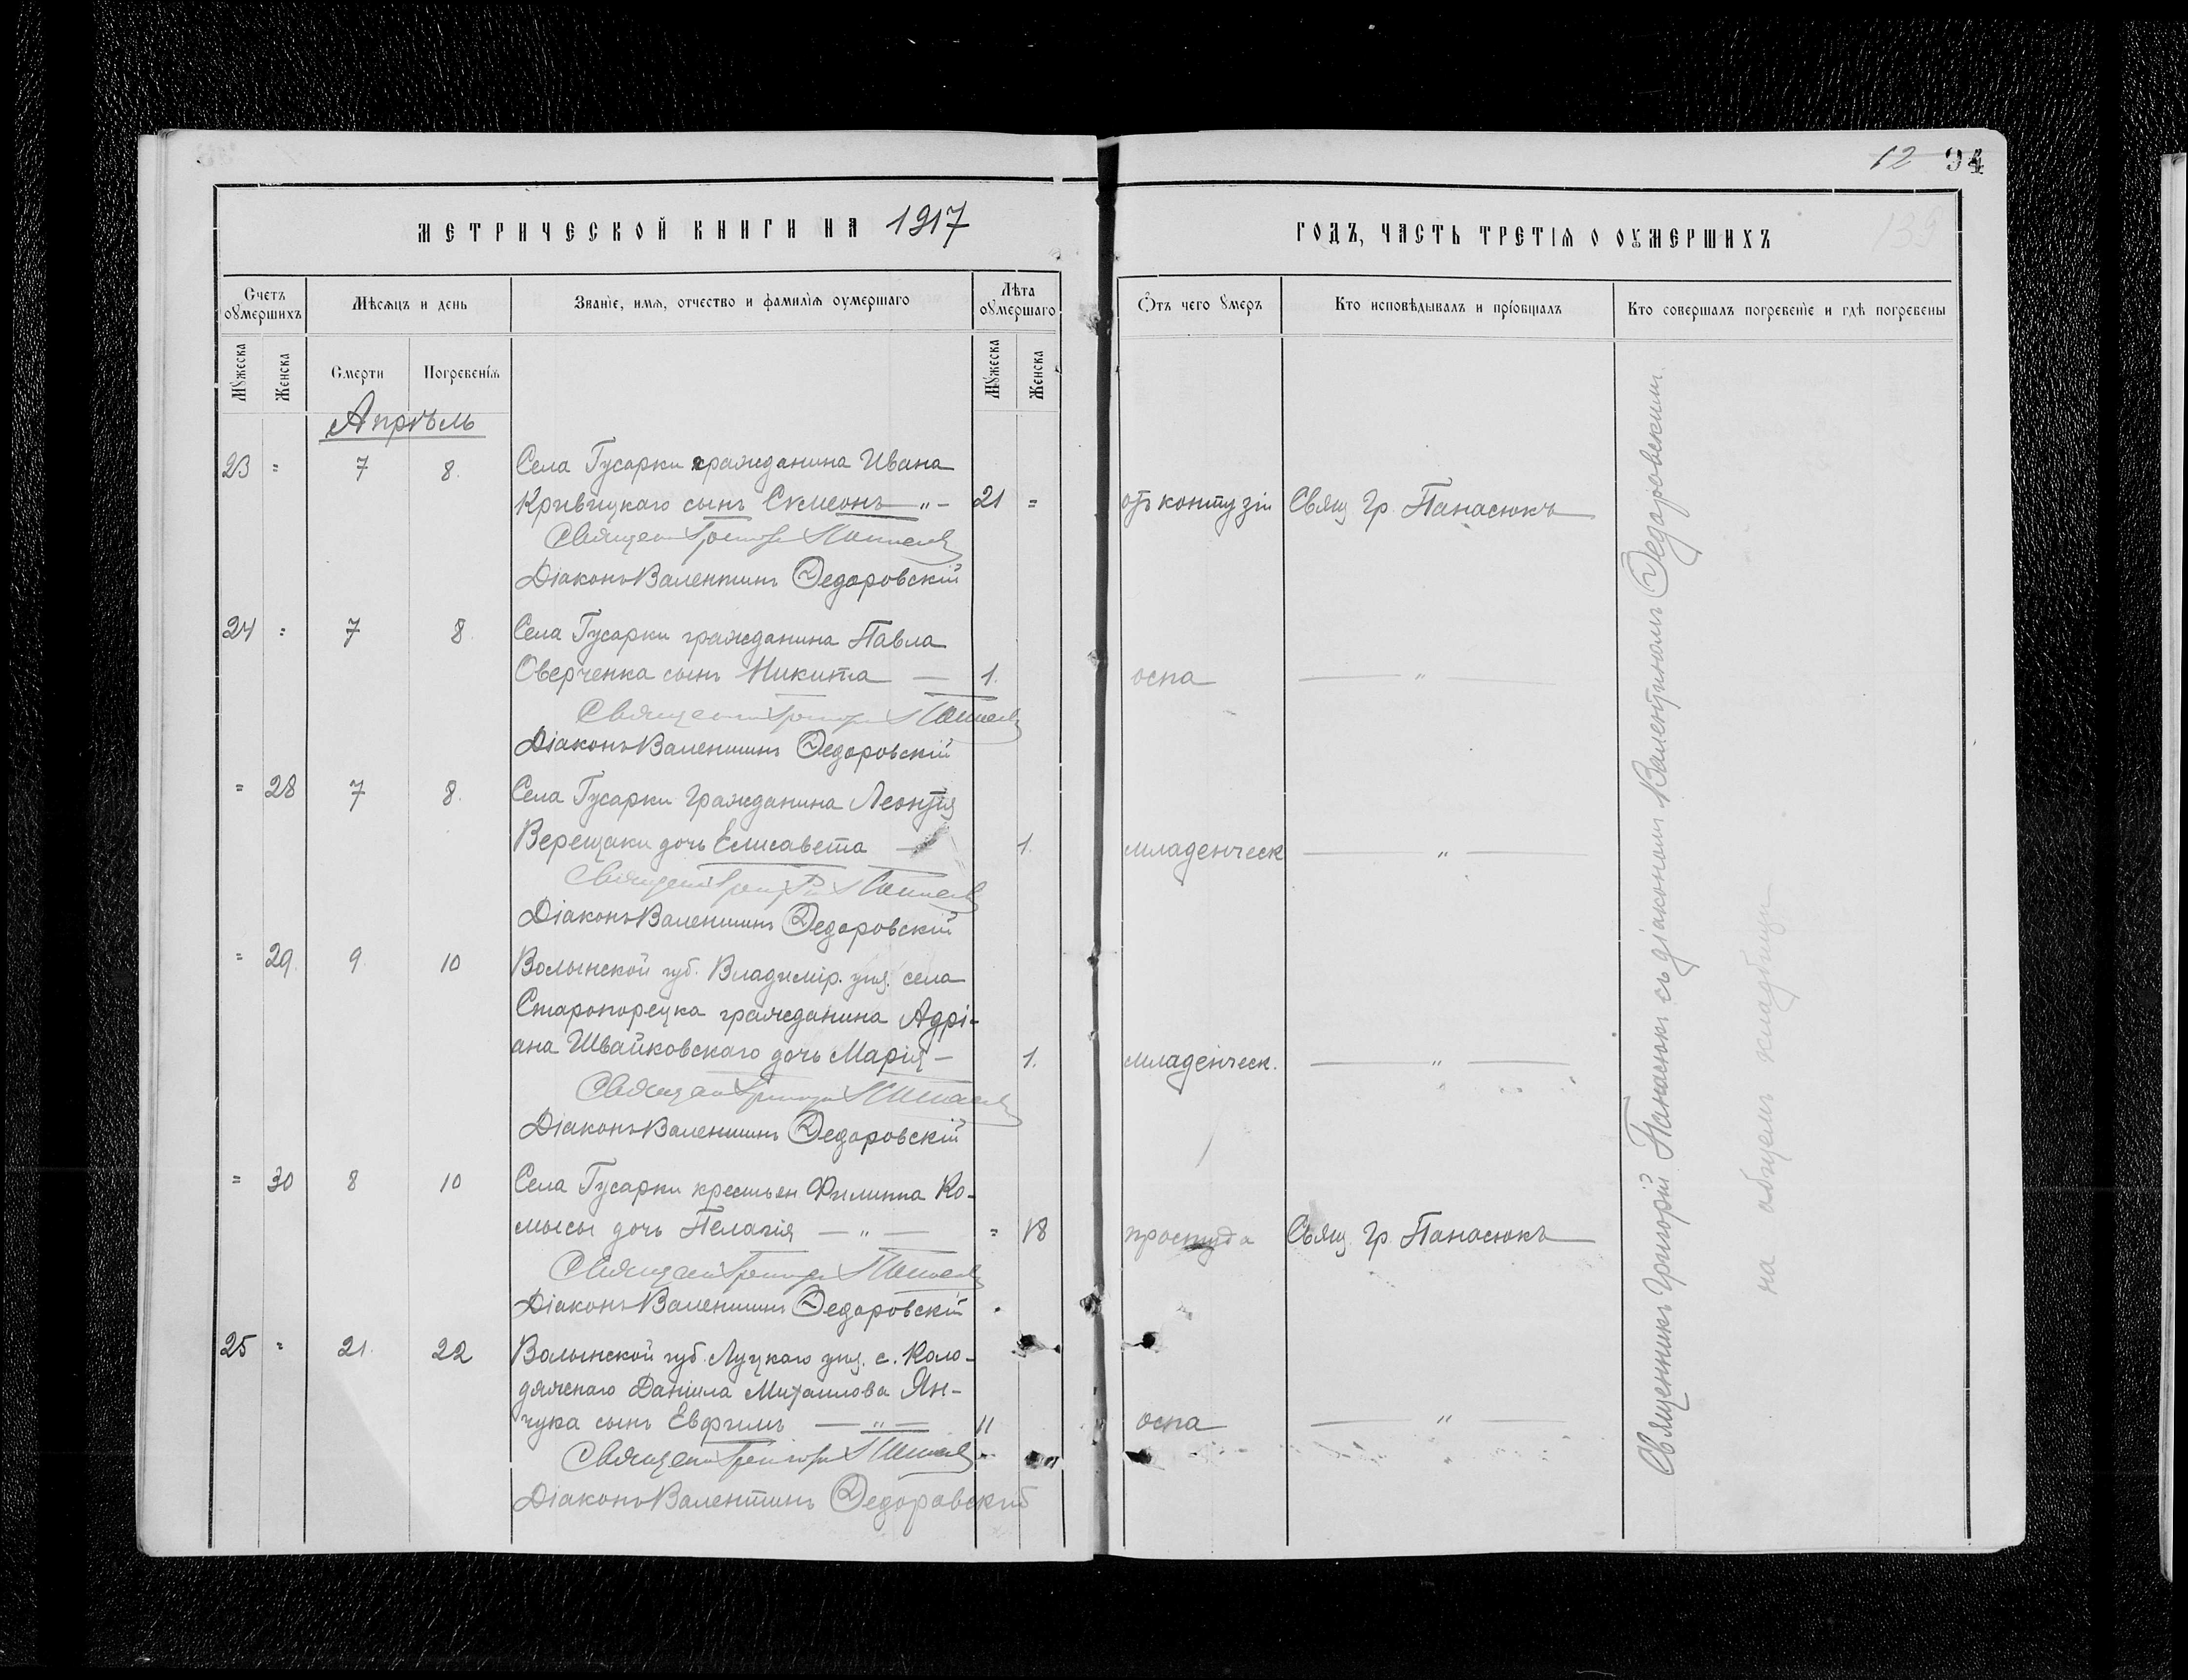 12 94
139
МЕТРИЧЕСКОЙ КНИГИ НА 1917
ГОДЪ, ЧАСТЬ ТРЕТІѦ О ОУМЕРШИХЪ
Счетъ оумершихъ
Мѣсѧцъ и день
Званіе, имѧ, отчество и фамиліѧ оумершаго
Лѣта оумершаго
Ѿтъ чего умеръ
Кто исповѣдывалъ и пріобщалъ
Кто совершалъ погребеніе и гдѣ погребены
Мужеска
Женска
Смерти
Погребеніѧ
Мужеска
Женска
Апрѣль
23 = 7 8. Села Гусарки гражданина Ивана
Кривицкаго сынъ Симеонъ —„— 21 = отъ контузіи Свящ Гр. Панасюкъ
Священ Григорій Панасюкъ
Діаконъ Валентинъ Федоровскій
24 = 7 8. Села Гусарки гражданина Павла
Оверченка сынъ Никита — 1. оспа — „ —
Священ Григорій Панасюкъ
Діаконъ Валентинъ Федоровскій
= 28 7 8. Села Гусарки гражданина Леонтія
Верещаки дочь Елисавета — 1. младенческ — „ —
Священ Григорій Панасюкъ
Діаконъ Валентинъ Федоровскій
= 29. 9. 10 Волынской губ. Владимір. уѣз. села
Старопорецка гражданина Адрі-
ана Швайковскаго дочь Марія — 1. младенческ. — „ —
Священ Григорій Панасюкъ
Діаконъ Валентинъ Федоровскій
= 30 8 10 Села Гусарки крестьян Филиппа Ко-
мысы дочь Пелагія — „ — = 18 простуда Свящ. Гр. Панасюкъ
Священ Григорій Панасюкъ
Діаконъ Валентинъ Федоровскій
25 = 21. 22 Волынской губ. Луцкаго уѣз. с. Коло-
дяжнаго Даніила Михаилова Ян-
чука сынъ Евфимъ — „ — 11 оспа — „ —
Священ Григорій Панасюкъ
Діаконъ Валентинъ Федоровскій
Священникъ Григорій Панасюкъ съ діакономъ Валентиномъ Федоровскимъ
на общемъ кладбищи